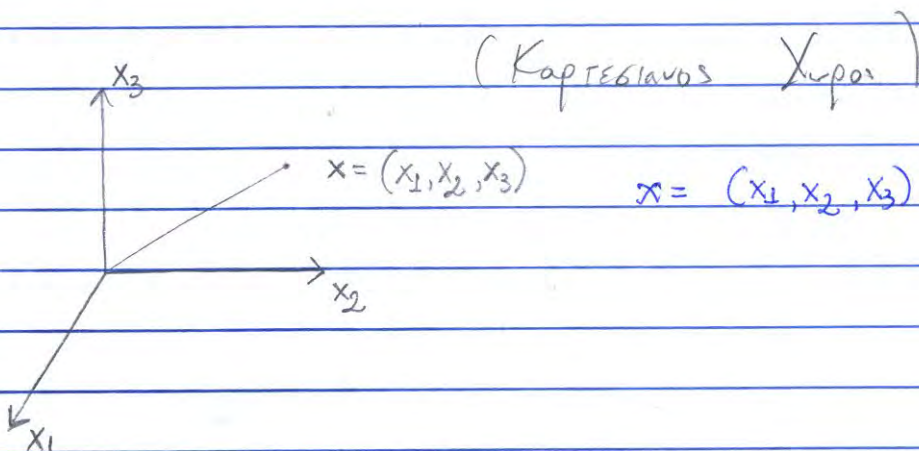 (Καρτεσιανος Χωρος)
x₃
x = (x₁, x₂, x₃)
x = (x₁, x₂, x₃)
x₂
x₁